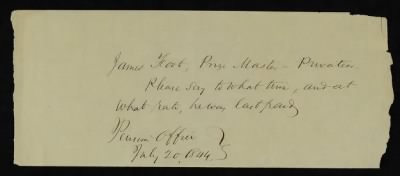 James Foot, Prize Master - Privateer
Please say to what time, and at
what rate, he was last paid
Pension Office }
July 20, 1844. }